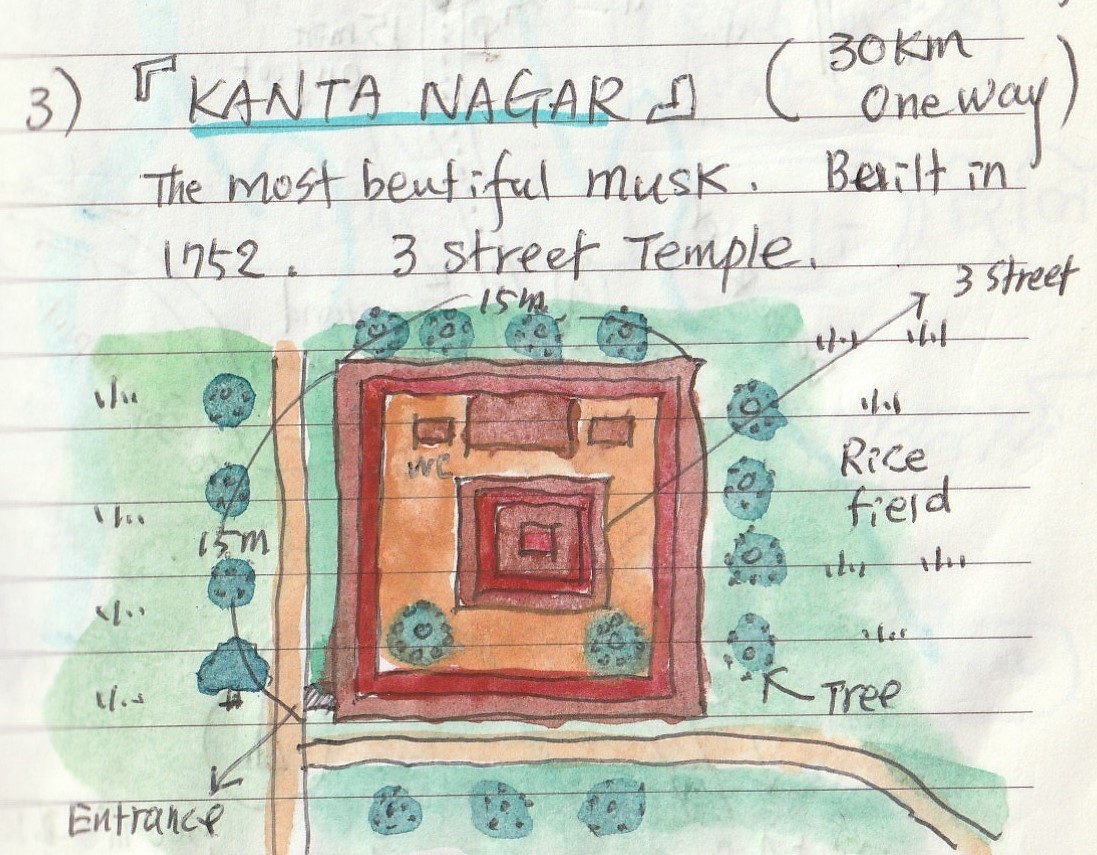 3) 『KANTA NAGAR』 (30km One way)
The most beutiful musk. Built in
1752. 3 street Temple.
3 street
15m
WC
Rice
field
15m
Tree
Entrance